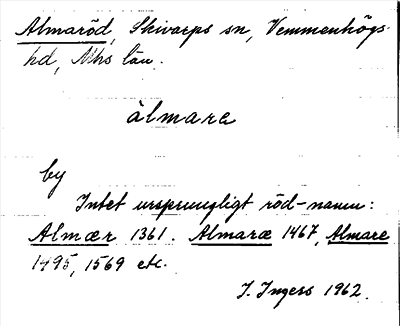 Almaröd, Skivarps sn, Vemmenhögs
hd, Mhs län.
àlmare
by
Intet ursprungligt röd-namn:
Almær 1361. Almaræ 1467, Almare
1495, 1569 etc.
I. Ingers 1962.